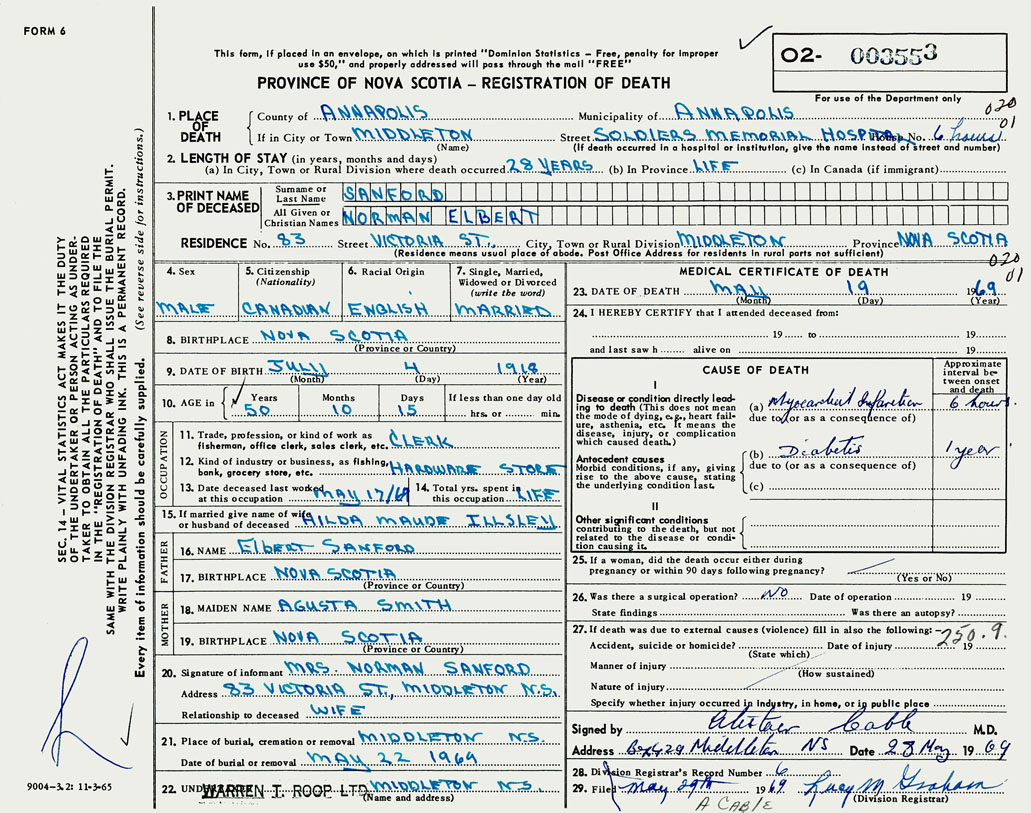 FORM 6
This form, if placed in an envelope, on which is printed "Dominion Statistics – Free, penalty for improper
use $50," and properly addressed will pass through the mail "FREE"
PROVINCE OF NOVA SCOTIA – REGISTRATION OF DEATH
O2- 003553
For use of the Department only
020
01
1. PLACE OF DEATH
County of ANNAPOLIS Municipality of ANNAPOLIS
If in City or Town MIDDLETON Street SOLDIERS MEMORIAL HOSPITAL House No. 6 hours
(Name) (If death occurred in a hospital or institution, give the name instead of street and number)
2. LENGTH OF STAY (in years, months and days)
(a) In City, Town or Rural Division where death occurred 28 YEARS (b) In Province LIFE (c) In Canada (if immigrant)
3. PRINT NAME OF DECEASED
Surname or Last Name SANFORD
All Given or Christian Names NORMAN ELBERT
RESIDENCE No. 83 Street VICTORIA ST., City, Town or Rural Division MIDDLETON Province NOVA SCOTIA
(Residence means usual place of abode. Post Office Address for residents in rural parts not sufficient)
020
01
4. Sex
MALE
5. Citizenship
(Nationality)
CANADIAN
6. Racial Origin
ENGLISH
7. Single, Married,
Widowed or Divorced
(write the word)
MARRIED
8. BIRTHPLACE NOVA SCOTIA
(Province or Country)
9. DATE OF BIRTH JULY 4 1918
(Month) (Day) (Year)
10. AGE in Years Months Days If less than one day old
50 10 15 hrs. or min.
OCCUPATION
11. Trade, profession, or kind of work as
fisherman, office clerk, sales clerk, etc. CLERK
12. Kind of industry or business, as fishing,
bank, grocery store, etc. HARDWARE STORE
13. Date deceased last worked
at this occupation MAY 17/69
14. Total yrs. spent in
this occupation LIFE
15. If married give name of wife
or husband of deceased HILDA MAUDE ILLSLEY
FATHER
16. NAME Elbert SANFORD
17. BIRTHPLACE NOVA SCOTIA
(Province or Country)
MOTHER
18. MAIDEN NAME AGUSTA SMITH
19. BIRTHPLACE NOVA SCOTIA
(Province or Country)
20. Signature of informant MRS. NORMAN SANFORD
Address 83 VICTORIA ST., MIDDLETON N.S.
Relationship to deceased WIFE
21. Place of burial, cremation or removal MIDDLETON N.S.
Date of burial or removal MAY 22 1969
22. UND WARREN T. ROOP LTD. MIDDLETON N.S.
(Name and address)
MEDICAL CERTIFICATE OF DEATH
23. DATE OF DEATH MAY 19 1969
(Month) (Day) (Year)
24. I HEREBY CERTIFY that I attended deceased from:
19 to 19
and last saw h alive on 19
CAUSE OF DEATH
Approximate
interval be-
tween onset
and death
I
Disease or condition directly lead-
ing to death (This does not mean
the mode of dying, e.g., heart fail-
ure, asthenia, etc. It means the
disease, injury, or complication
which caused death.)
(a) Myocardial Infarction 6 hours
due to (or as a consequence of)
Antecedent causes
Morbid conditions, if any, giving
rise to the above cause, stating
the underlying condition last.
(b) Diabetis 1 year
due to (or as a consequence of)
(c)
II
Other significant conditions
contributing to the death, but not
related to the disease or condi-
tion causing it.
25. If a woman, did the death occur either during
pregnancy or within 90 days following pregnancy?
(Yes or No)
26. Was there a surgical operation? NO Date of operation 19
State findings Was there an autopsy?
27. If death was due to external causes (violence) fill in also the following:
250.9
Accident, suicide or homicide? Date of injury 19
(State which)
Manner of injury
(How sustained)
Nature of injury
Specify whether injury occurred in industry, in home, or in public place
Signed by Alistair Cable M.D.
Address Box 429 Middleton NS Date 23 May 1969
28. Division Registrar's Record Number 6
29. Filed May 29th 1969 Lucy M Graham
(Division Registrar)
A CABLE
SEC. 14 – VITAL STATISTICS ACT MAKES IT THE DUTY
OF THE UNDERTAKER OR PERSON ACTING AS UNDER-
TAKER TO OBTAIN ALL THE PARTICULARS REQUIRED
IN THE "REGISTRATION OF DEATH" AND TO FILE THE
SAME WITH THE DIVISION REGISTRAR WHO SHALL ISSUE THE BURIAL PERMIT.
WRITE PLAINLY WITH UNFADING INK. THIS IS A PERMANENT RECORD.
Every item of information should be carefully supplied. (See reverse side for instructions.)
9004–3.2: 11-3-65